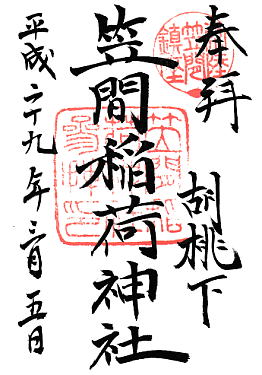 奉拝
胡桃下
笠間稲荷神社
平成二十九年三月五日